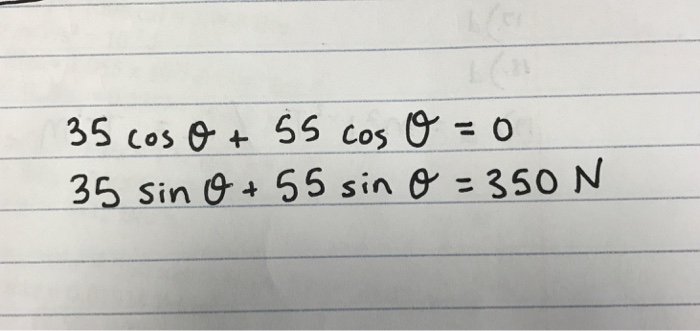 35 cos θ + 55 cos θ = 0
35 sin θ + 55 sin θ = 350 N